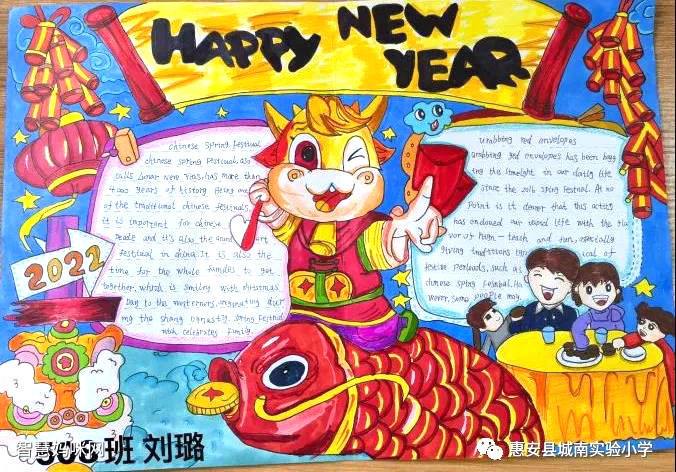 HAPPY NEW
YEAR
chinese Spring Festival
chinese spring Festival, also
calls lunar New Years, has more than
4000 years of history. Being one
of the traditional chinese festivals,
it is important for chinese
people and it's also the grand
festival in china. It is also the
time for the whole families to get
together, which is similar with christmas
Day to the westerners, originating dur
ing the shang dynasty, spring Festival
celebrates family
Grabbing red envelopes
Grabbing red envelopes has been hogg
ing the limelight in our daily life
since the 2015 spring Festival. At no
point is it denier that this activity
has endowed our social life with the fla
vor of high-tech and fun, especially
giving traditions
festive periods, such as
chinese spring Festival. Ho
wever, some people may
2022
班 刘璐
智慧妈咪网
惠安县城南实验小学